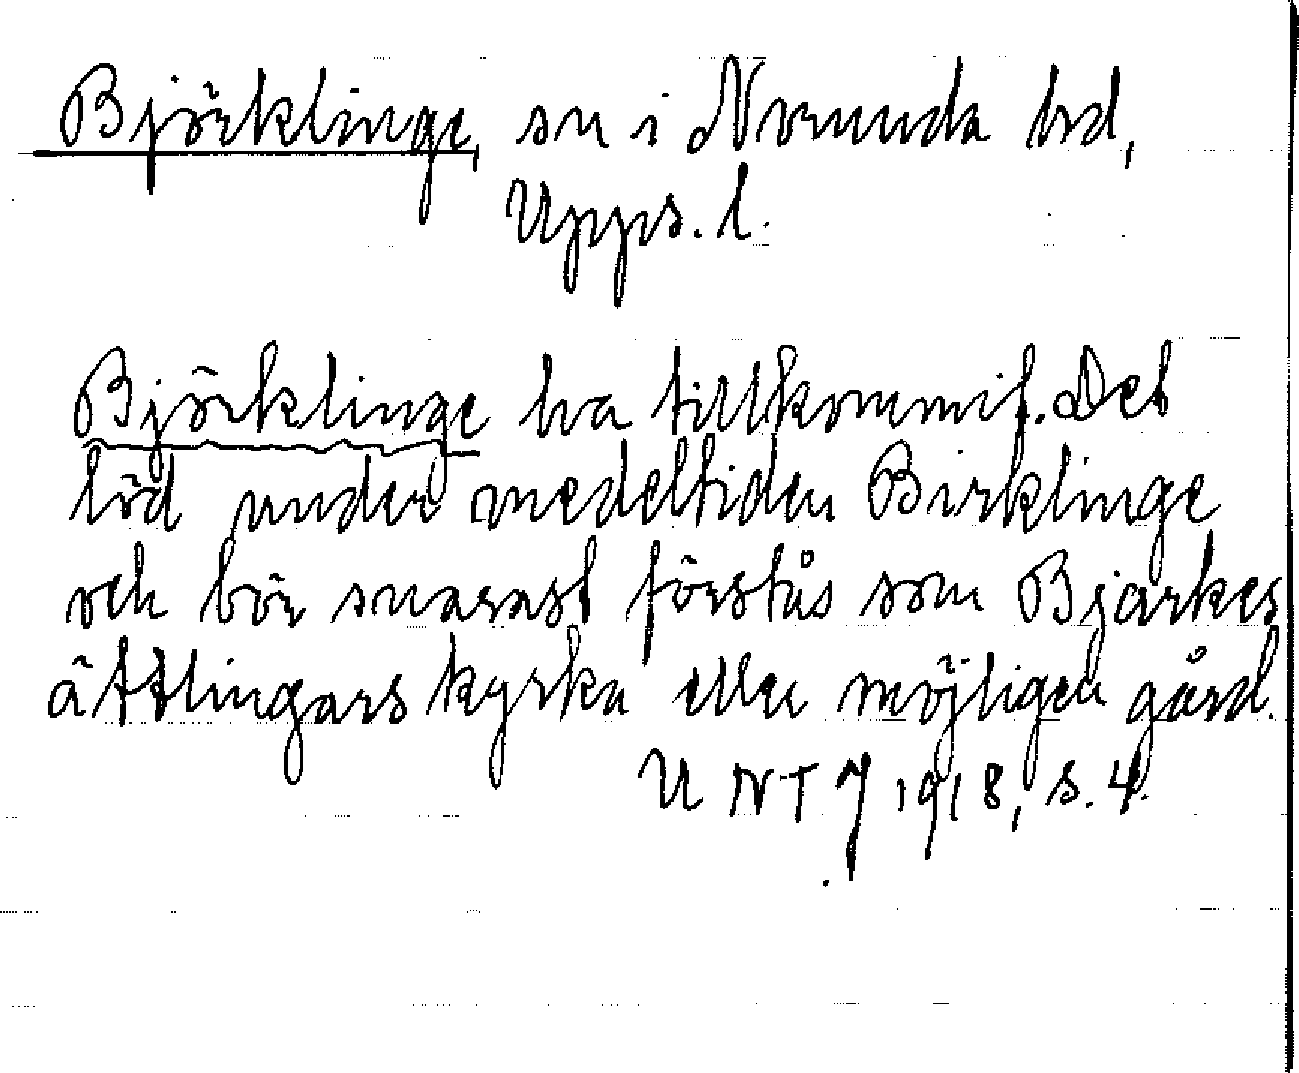 Björklinge, sn i Norunda hd,
Upps. l.
Björklinge ha tillkommit. Det
löd under medeltiden Birklinge
och bör snarast förstås som Bjarkes
ättlingars kyrka eller möjligen gård.
UNT J 1918, s. 4.